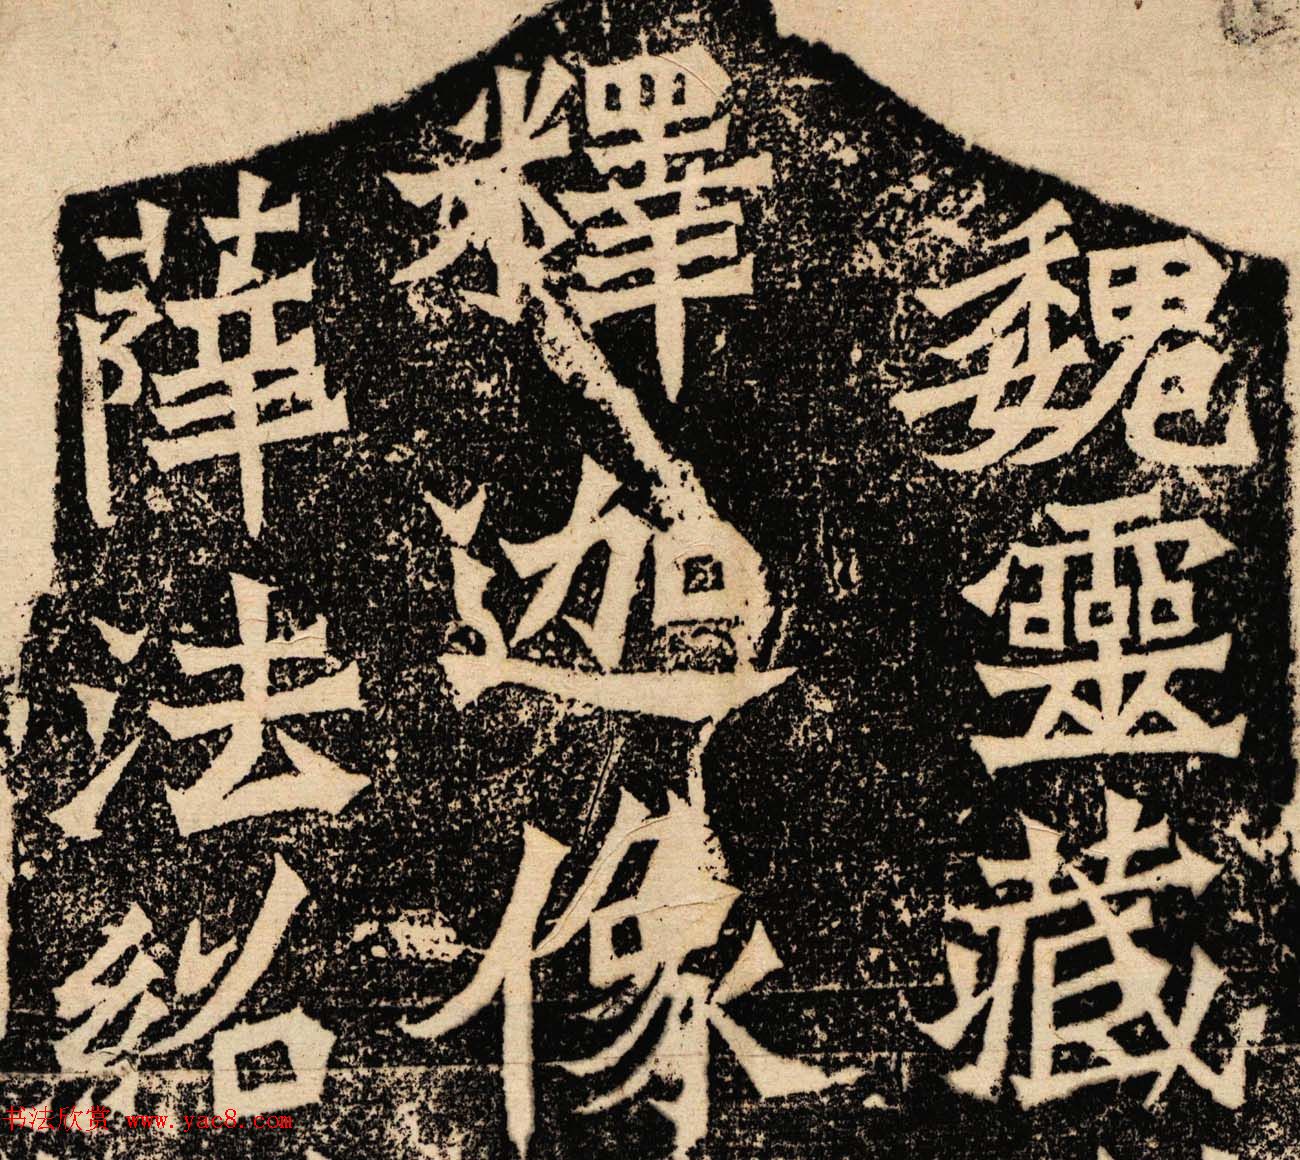 魏靈藏
釋迦像
薛法紹
书法欣赏 www.yac8.com